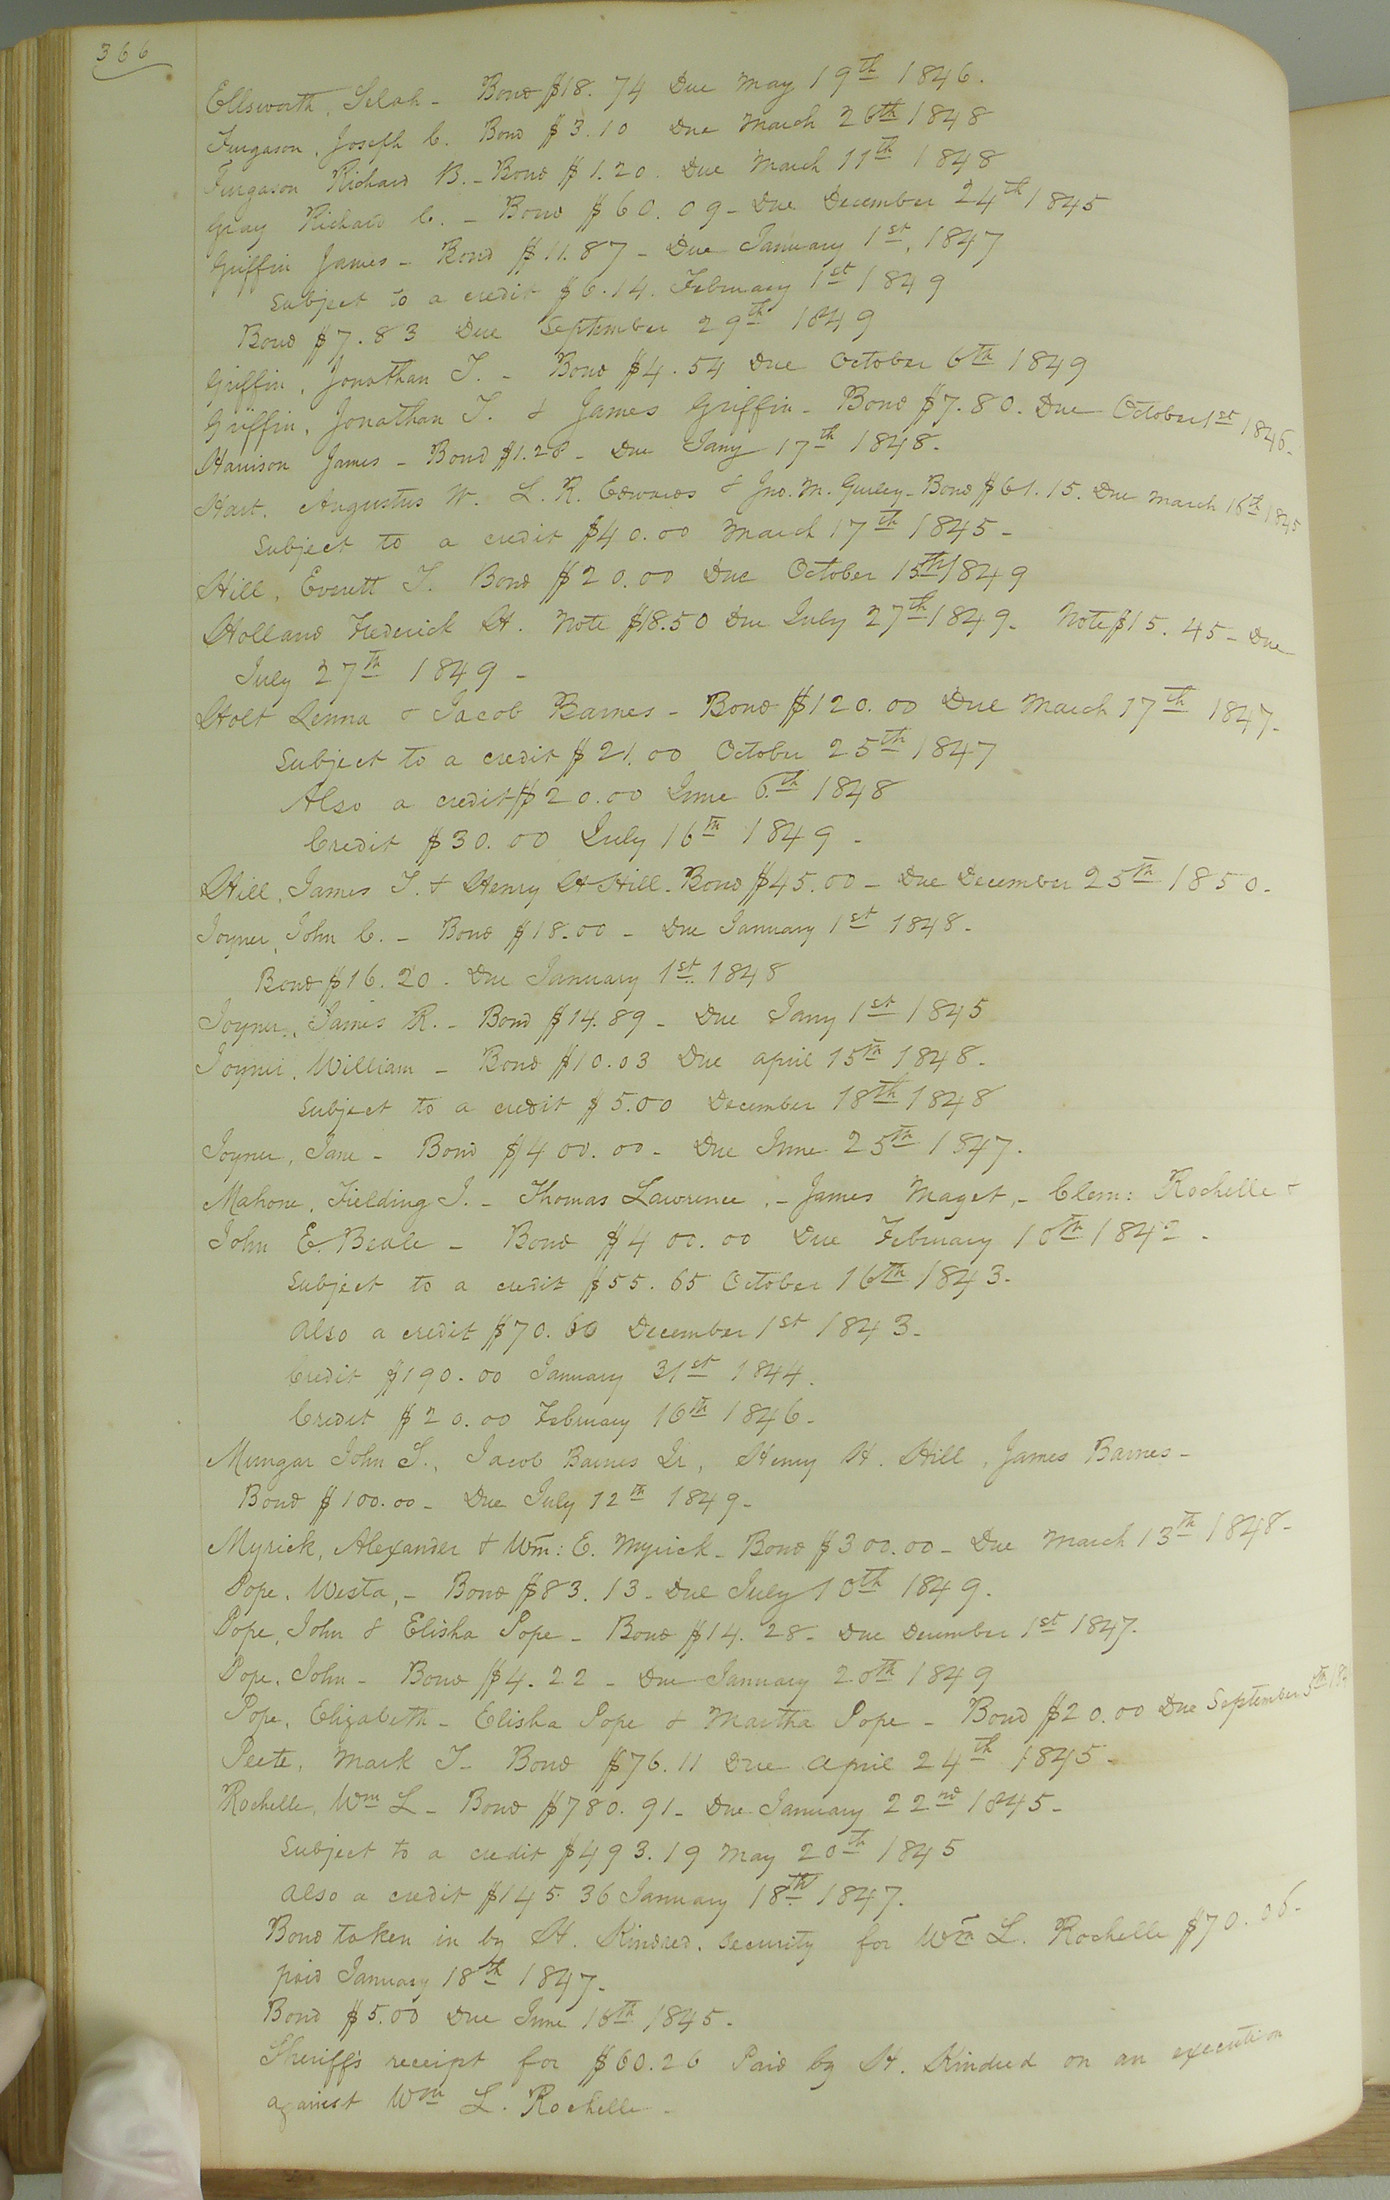 366
Ellsworth, Selah - Bond $18.74 Due May 19th 1846.
Furgason, Joseph C. Bond $3.10 Due March 26th 1848
Furgason Richard B. - Bond $1.20. Due March 11th 1848
Gray Richard C. - Bond $60.09 - Due December 24th 1845
Griffin James - Bond $11.87 - Due January 1st, 1847
Subject to a credit $6.14. February 1st 1849
Bond $7.83 Due September 29th 1849
Griffin, Jonathan T. - Bond $4.54 Due October 6th 1849
Griffin, Jonathan T. & James Griffin - Bond $7.80. Due October 1st 1846.
Harrison James - Bond $1.28 - Due Jany 17th 1848.
Hart. Augustus W. L. R. Edwards & Jno. M. Gurley - Bond $61.15. Due March 16th 1845
Subject to a credit $40.00 March 17th 1845 -
Hill, Everett T. Bond $20.00 Due October 15th 1849
Holland Frederick H. Note $18.50 Due July 27th 1849. Note $15.45 - Due
July 27th 1849 -
Holt Lenna & Jacob Barnes - Bond $120.00 Due March 17th 1847.
Subject to a credit $21.00 October 25th 1847
Also a credit $20.00 June 6th 1848
Credit $30.00 July 16th 1849 -
Hill, James T. & Henry H Hill. Bond $45.00 - Due December 25th 1850.
Joyner, John C. - Bond $18.00 - Due January 1st 1848.
Bond $16.20. Due January 1st 1848
Joyner, James R. - Bond $14.89 - Due Jany 1st 1845
Joyner, William - Bond $10.03 Due april 15th 1848.
Subject to a credit $5.00 December 18th 1848
Joyner, Jane - Bond $400.00 - Due June 25th 1847.
Mahone, Fielding J. - Thomas Lawrence, - James Maget, - Clem: Rochelle &
John E. Beale - Bond $400.00 Due February 10th 1842.
Subject to a credit $55.65 October 16th 1843.
Also a credit $70.60 December 1st 1843.
Credit $190.00 January 31st 1844.
Credit $20.00 February 16th 1846.
Mungar John S., Jacob Barnes Jr, Henry H. Hill, James Barnes -
Bond $100.00 - Due July 12th 1849.
Myrick, Alexander & Wm: E. Myrick - Bond $300.00 - Due March 13th 1848 -
Pope, Westa, - Bond $83.13 - Due July 10th 1849.
Pope, John & Elisha Pope - Bond $14.28 - Due December 1st 1847.
Pope, John - Bond $4.22 - Due January 20th 1849
Pope, Elizabeth - Elisha Pope & Martha Pope - Bond $20.00 Due September 5th
Peete, Mark T - Bond $76.11 Due April 24th 1845 -
Rochelle, Wm L - Bond $780.91 - Due January 22nd 1845 -
Subject to a credit $493.19 May 20th 1845
Also a credit $145.36 January 18th 1847.
Bond taken in by H. Kindred, security for Wm L. Rochelle $70.06.
paid January 18th 1847.
Bond $5.00 Due June 16th 1845.
Sheriff's receipt for $60.26 Paid by H. Kindred on an execution
against Wm L. Rochelle -